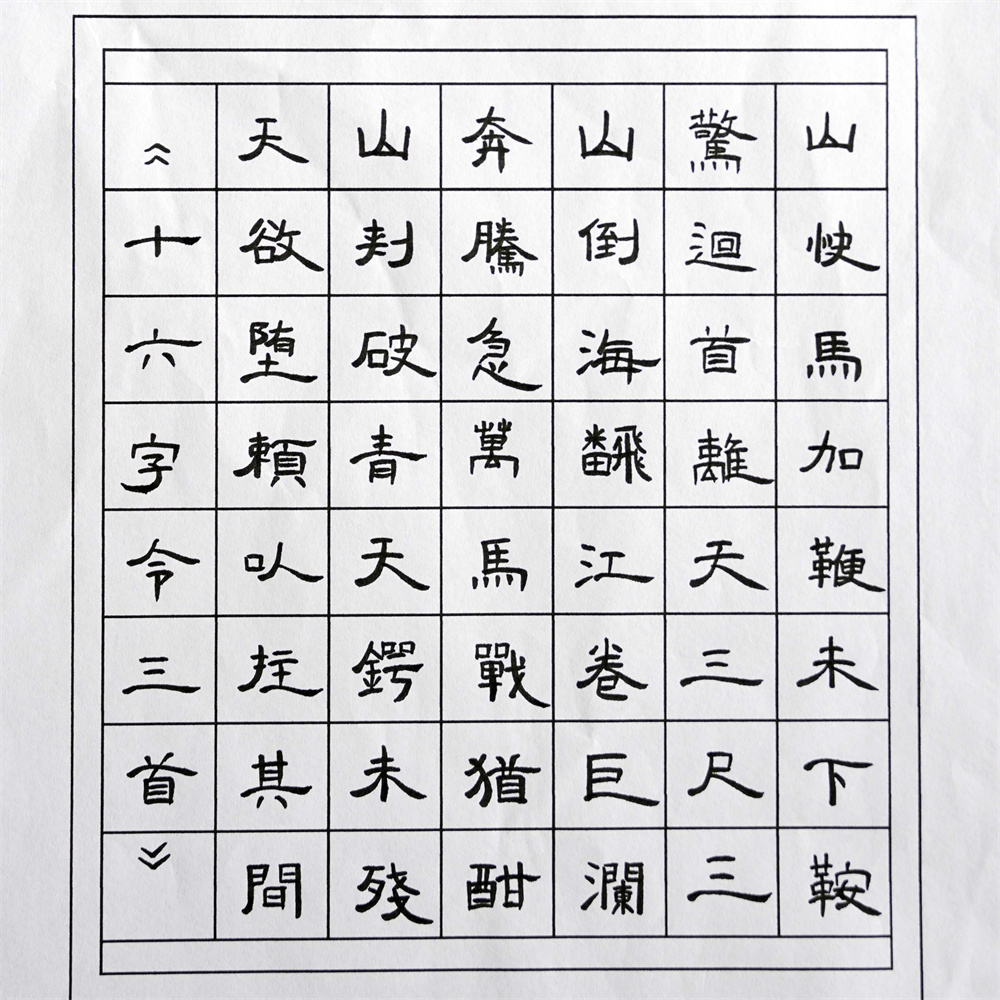 山快馬加鞭未下鞍
驚迴首離天三尺三
山倒海飜江卷巨瀾
奔騰急萬馬戰猶酣
山刾破青天鍔未殘
天欲堕頼㕥拄其間
《十六字令三首》